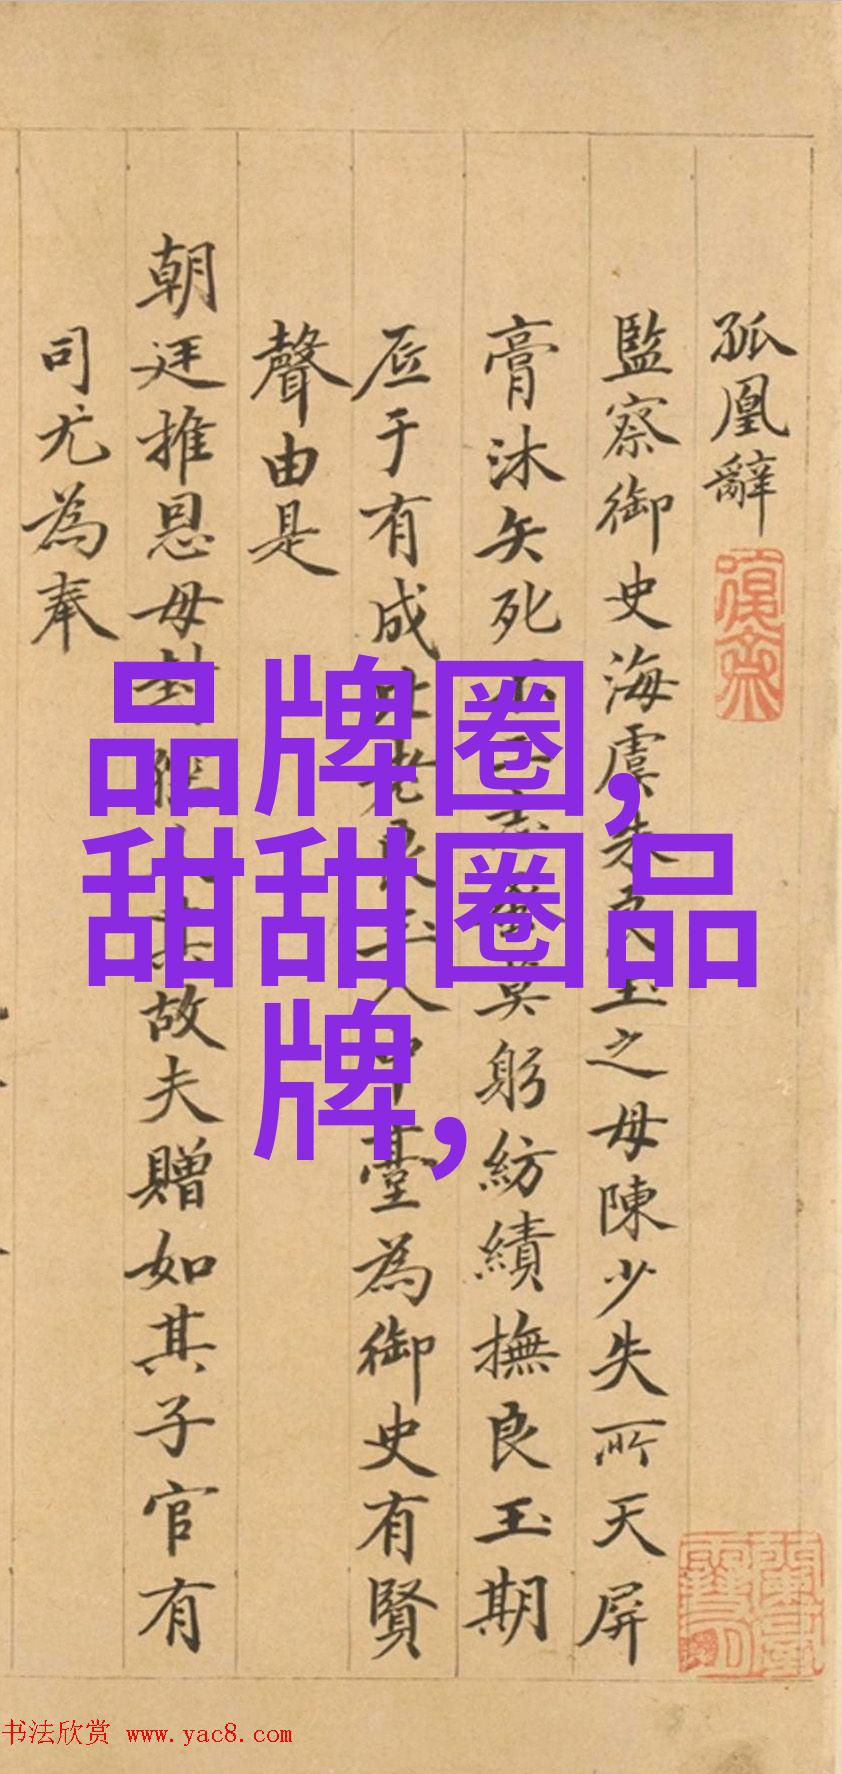 孤凰辭
監察御史海虞朱良玉之母陳少失所天屏
膏沐矢死不二志蚤莫躬紡績撫良玉期
底于有成此老良玉入中臺為御史有賢
聲由是
朝廷推恩母封孺人其故夫贈如其子官有
司尤為奉
品牌圈,
甜甜圈品
牌,
书法欣赏 www.yac8.com